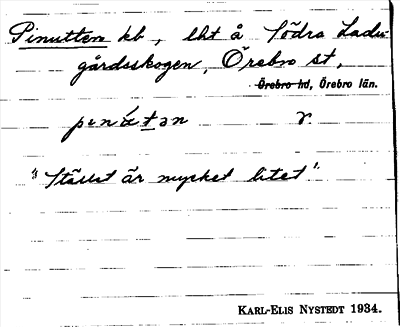 Pinutten kb, lht å Södra Ladu-
gårdsskogen, Örebro st,
Örebro hd, Örebro län.
pɩnátən r.
"Stället är mycket litet".
KARL-ELIS NYSTEDT 1934.